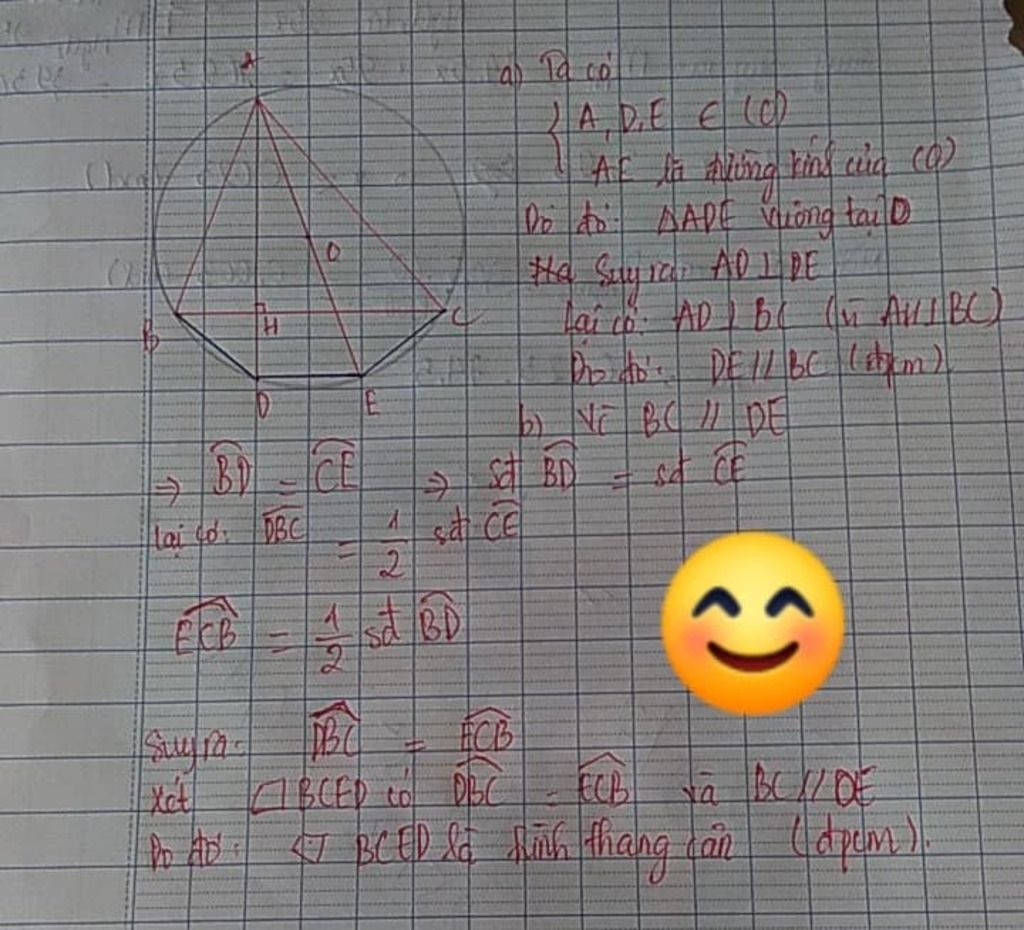 A
O
B
H
C
D
E
a) Ta có
A, D, E ∈ (O)
AE là đường kính của (O)
Do đó: ΔADE vuông tại D
Suy ra: AD ⊥ DE
Lại có: AD ⊥ BC (vì AH ⊥ BC)
Do đó: DE // BC (đpcm)
b) Vì BC // DE
⇒ BD̑ = CȆ ⇒ sđ BD̑ = sđ CȆ
Lại có: DBC̑ = 1/2 sđ CȆ
ECB̑ = 1/2 sđ BD̑
Suy ra: DBC̑ = ECB̑
Xét ▱ BCED có DBC̑ = ECB̑ và BC // DE
Do đó: ▱ BCED là hình thang cân (đpcm).